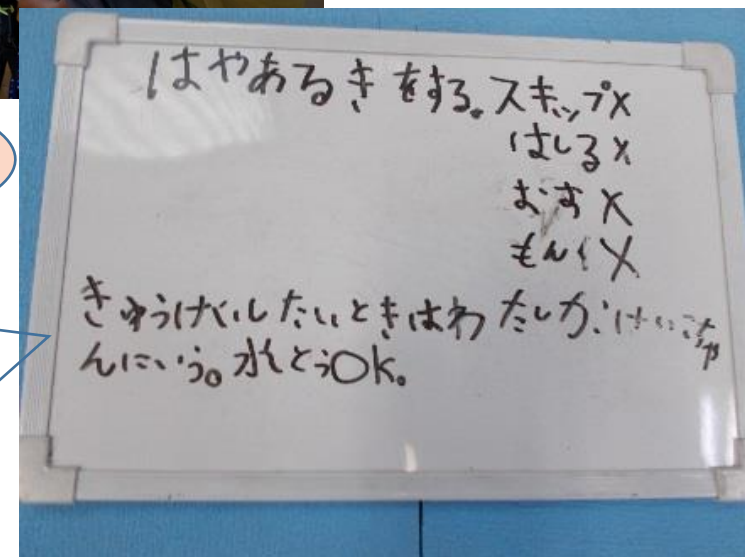 はやあるきをする。スキップ×
はしる×
おす×
もんく×
きゅうけいしたいときはわたしか、けいちゃ
んにいう。水とうOK。